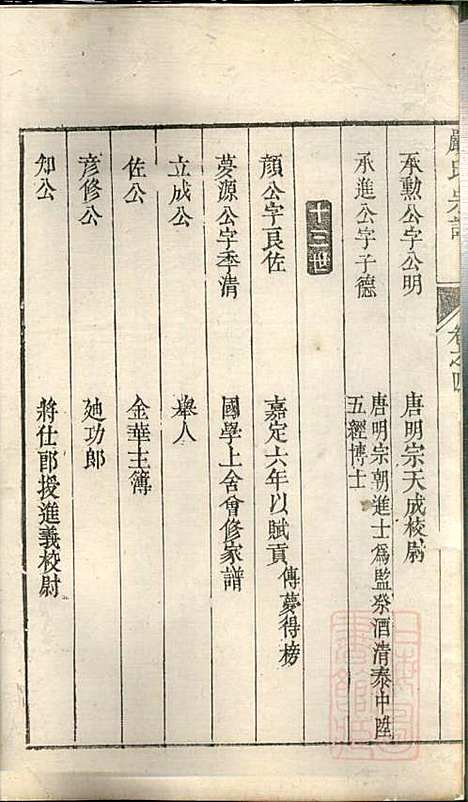 嚴氏宗譜
卷之四
承勲公字公明 唐明宗天成校尉
承進公字子德 唐明宗朝進士為監祭酒清泰中陞
五經博士
十三世
顏公字良佐 嘉定六年以賦貢 傳夢得榜
夢源公字季清 國學上舍會修家譜
立成公 舉人
佐公 金華主簿
彥修公 廸功郎
知公 將仕郎授進義校尉